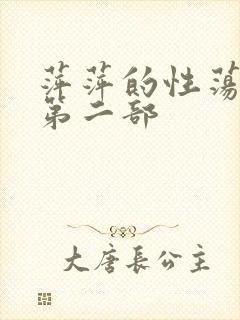 萍萍的性蕩
第二部
大唐長公主